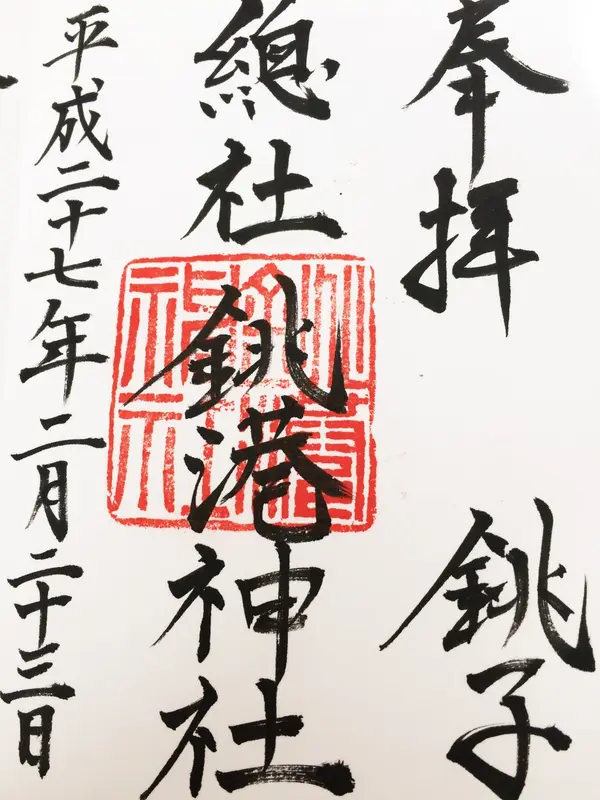 奉拝
銚子
總社
銚港神社
平成二十七年二月二十三日